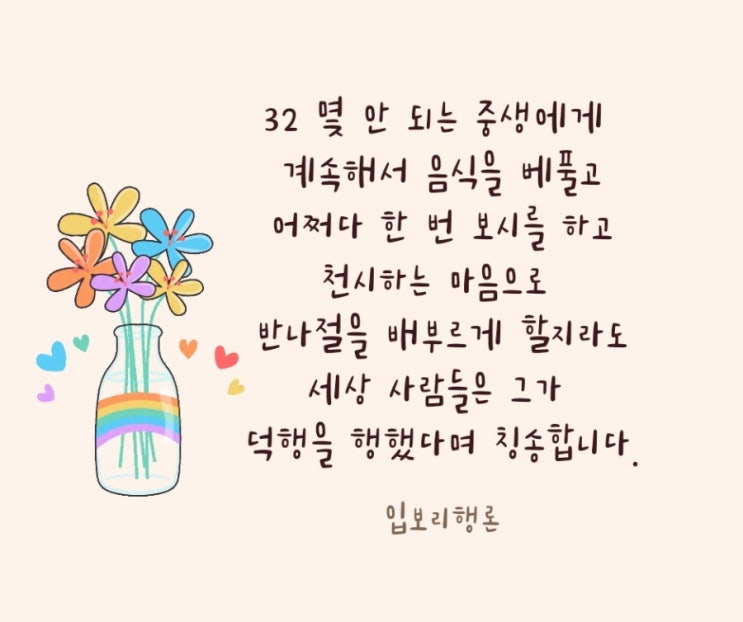 32 몇 안 되는 중생에게
계속해서 음식을 베풀고
어쩌다 한 번 보시를 하고
천시하는 마음으로
반나절을 배부르게 할지라도
세상 사람들은 그가
덕행을 행했다며 칭송합니다.
입보리행론